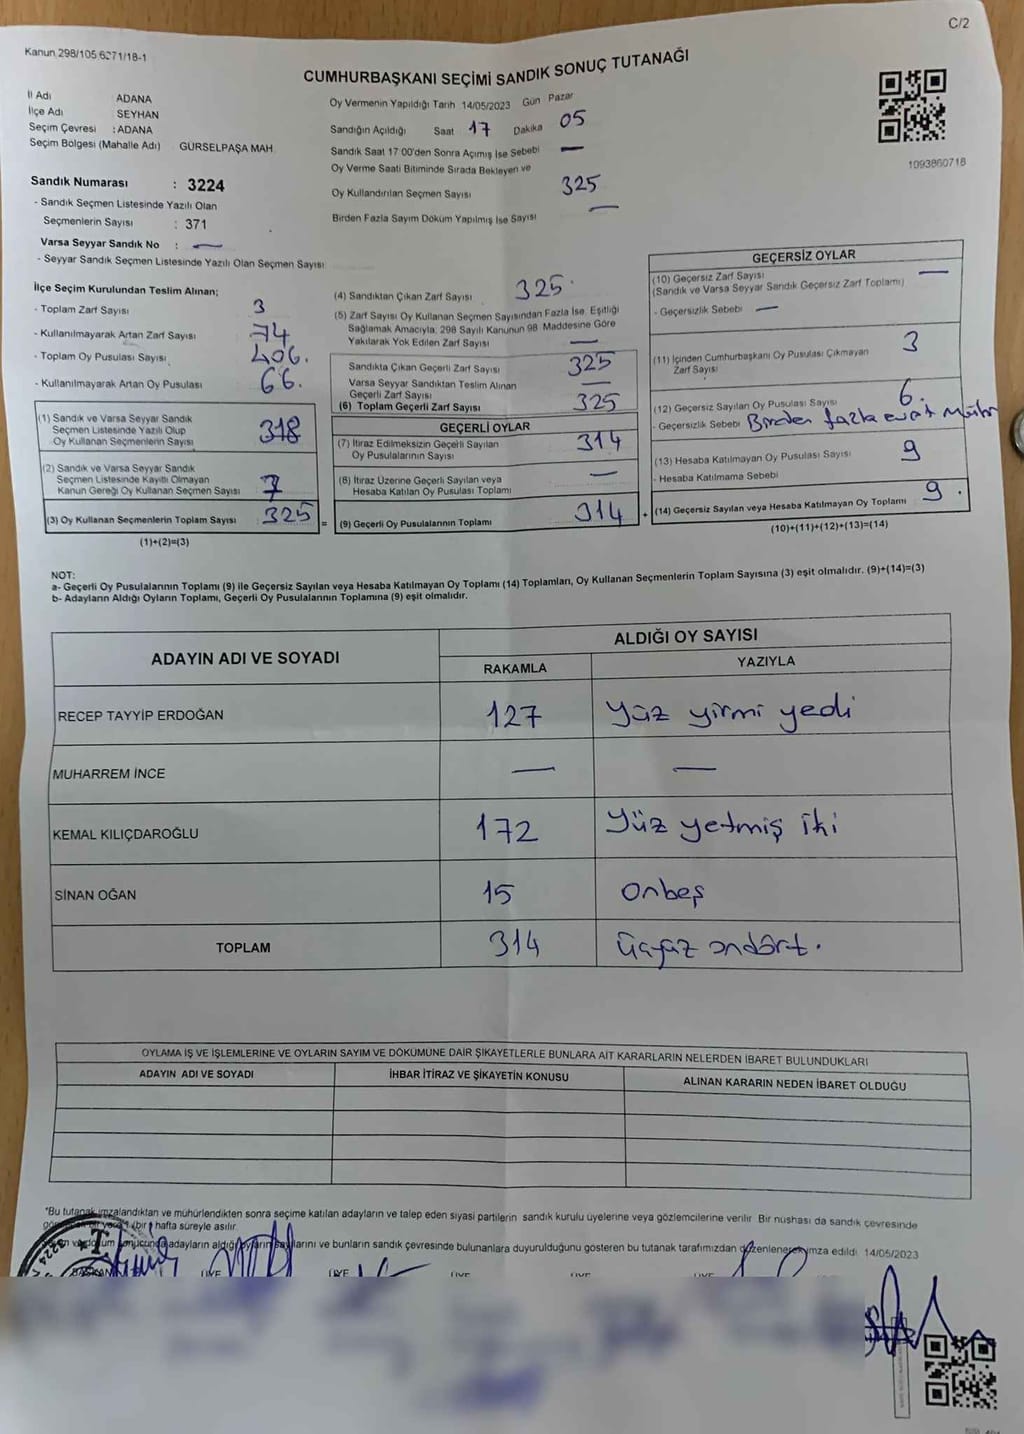 C/2
Kanun 298/105 6271/18-1
CUMHURBAŞKANI SEÇİMİ SANDIK SONUÇ TUTANAĞI
İl Adı ADANA
İlçe Adı SEYHAN
Seçim Çevresi : ADANA
Seçim Bölgesi (Mahalle Adı) GÜRSELPAŞA MAH.
Sandık Numarası : 3224
- Sandık Seçmen Listesinde Yazılı Olan
Seçmenlerin Sayısı : 371
Varsa Seyyar Sandık No : —
- Seyyar Sandık Seçmen Listesinde Yazılı Olan Seçmen Sayısı
Oy Vermenin Yapıldığı Tarih 14/05/2023 Gün Pazar
Sandığın Açıldığı Saat 17 Dakika 05
Sandık Saat 17:00'den Sonra Açımış İse Sebebi —
Oy Verme Saati Bitiminde Sırada Bekleyen ve
Oy Kullandırılan Seçmen Sayısı 325
Birden Fazla Sayım Döküm Yapılmış İse Sayısı —
1093860718
İlçe Seçim Kurulundan Teslim Alınan;
- Toplam Zarf Sayısı 3
- Kullanılmayarak Artan Zarf Sayısı 74
- Toplam Oy Pusulası Sayısı 406.
- Kullanılmayarak Artan Oy Pusulası 66.
(1) Sandık ve Varsa Seyyar Sandık
Seçmen Listesinde Yazılı Olup
Oy Kullanan Seçmenlerin Sayısı 318
(2) Sandık ve Varsa Seyyar Sandık
Seçmen Listesinde Kayıtlı Olmayan
Kanun Gereği Oy Kullanan Seçmen Sayısı 7
(3) Oy Kullanan Seçmenlerin Toplam Sayısı 325 =
(1)+(2)=(3)
(4) Sandıktan Çıkan Zarf Sayısı 325.
(5) Zarf Sayısı Oy Kullanan Seçmen Sayısından Fazla İse, Eşitliği
Sağlamak Amacıyla; 298 Sayılı Kanunun 98. Maddesine Göre
Yakılarak Yok Edilen Zarf Sayısı —
Sandıkta Çıkan Geçerli Zarf Sayısı 325
Varsa Seyyar Sandıktan Teslim Alınan
Geçerli Zarf Sayısı —
(6) Toplam Geçerli Zarf Sayısı 325
GEÇERLİ OYLAR
(7) İtiraz Edilmeksizin Geçerli Sayılan
Oy Pusulalarının Sayısı 314
(8) İtiraz Üzerine Geçerli Sayılan veya
Hesaba Katılan Oy Pusulası Toplamı —
(9) Geçerli Oy Pusulalarının Toplamı 314 +
GEÇERSİZ OYLAR
(10) Geçersiz Zarf Sayısı —
(Sandık ve Varsa Seyyar Sandık Geçersiz Zarf Toplamı)
- Geçersizlik Sebebi —
(11) İçinden Cumhurbaşkanı Oy Pusulası Çıkmayan 3
Zarf Sayısı
(12) Geçersiz Sayılan Oy Pusulası Sayısı 6.
- Geçersizlik Sebebi Birden fazla evat mühr
(13) Hesaba Katılmayan Oy Pusulası Sayısı 9
- Hesaba Katılmama Sebebi
(14) Geçersiz Sayılan veya Hesaba Katılmayan Oy Toplamı 9.
(10)+(11)+(12)+(13)=(14)
NOT:
a- Geçerli Oy Pusulalarının Toplamı (9) ile Geçersiz Sayılan veya Hesaba Katılmayan Oy Toplamı (14) Toplamları, Oy Kullanan Seçmenlerin Toplam Sayısına (3) eşit olmalıdır. (9)+(14)=(3)
b- Adayların Aldığı Oyların Toplamı, Geçerli Oy Pusulalarının Toplamına (9) eşit olmalıdır.
ADAYIN ADI VE SOYADI
ALDIĞI OY SAYISI
RAKAMLA YAZIYLA
RECEP TAYYİP ERDOĞAN 127 Yüz yirmi yedi
MUHARREM İNCE — —
KEMAL KILIÇDAROĞLU 172 Yüz yetmiş iki
SİNAN OĞAN 15 Onbeş
TOPLAM 314 üçyüz ondört.
OYLAMA İŞ VE İŞLEMLERINE VE OYLARIN SAYIM VE DÖKÜMÜNE DAİR ŞİKAYETLERLE BUNLARA AİT KARARLARIN NELERDEN İBARET BULUNDUKLARI
ADAYIN ADI VE SOYADI İHBAR İTİRAZ VE ŞİKAYETİN KONUSU ALINAN KARARIN NEDEN İBARET OLDUĞU
*Bu tutanak imzalandıktan ve mühürlendikten sonra seçime katılan adayların ve talep eden siyasi partilerin sandık kurulu üyelerine veya gözlemcilerine verilir. Bir nüshası da sandık çevresinde
(bir) hafta süreyle asılır.
sonucunda adayların aldığı oyların sayılarını ve bunların sandık çevresinde bulunanlara duyurulduğunu gösteren bu tutanak tarafımızdan düzenlenerek imza edildi. 14/05/2023
3224 T.
BAŞKAN ÜYE ÜYE ÜYE ÜYE ÜYE